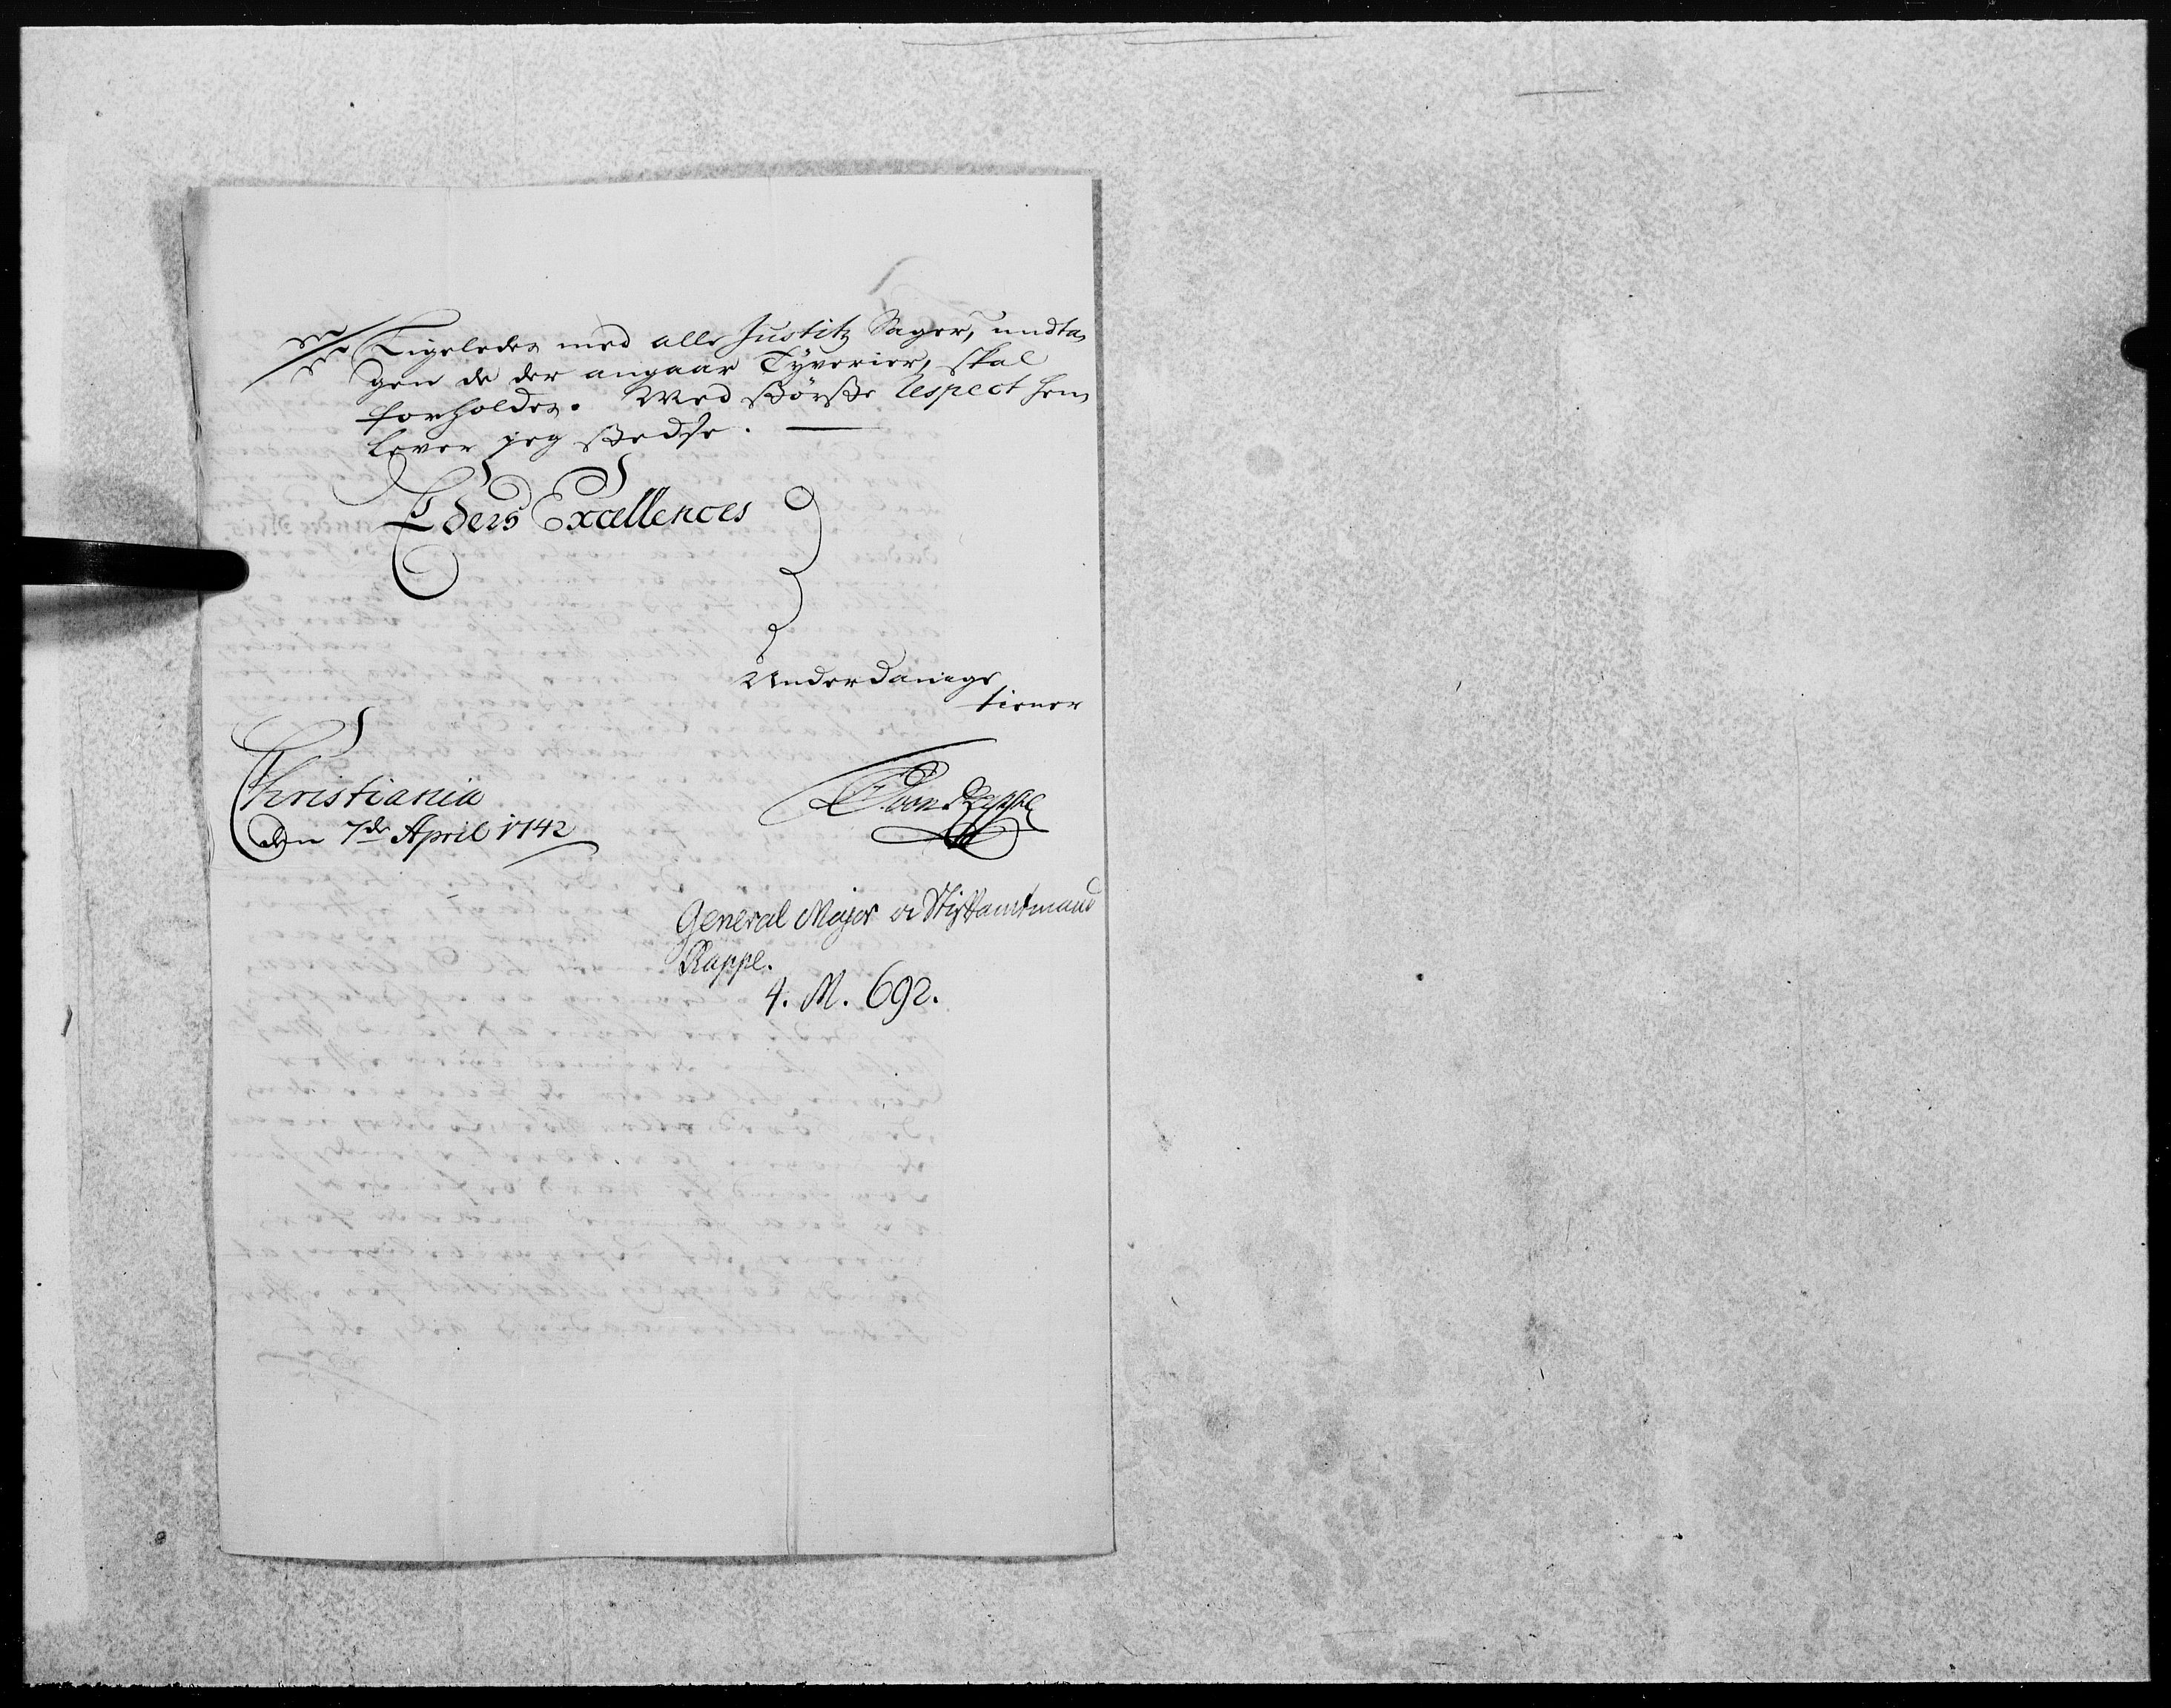 Ligeledes med alle Justitz Sager, undta,
gen de der angaar Tyverier, skal
forholdes. Med største respect hen,
lever jeg stedse.
Eders Excellences
Underdanige
tiener
Christiania
den 7de April 1742
C. von Rappe
General Major og Stiftamtmand
Rappe.
4. M. 692.